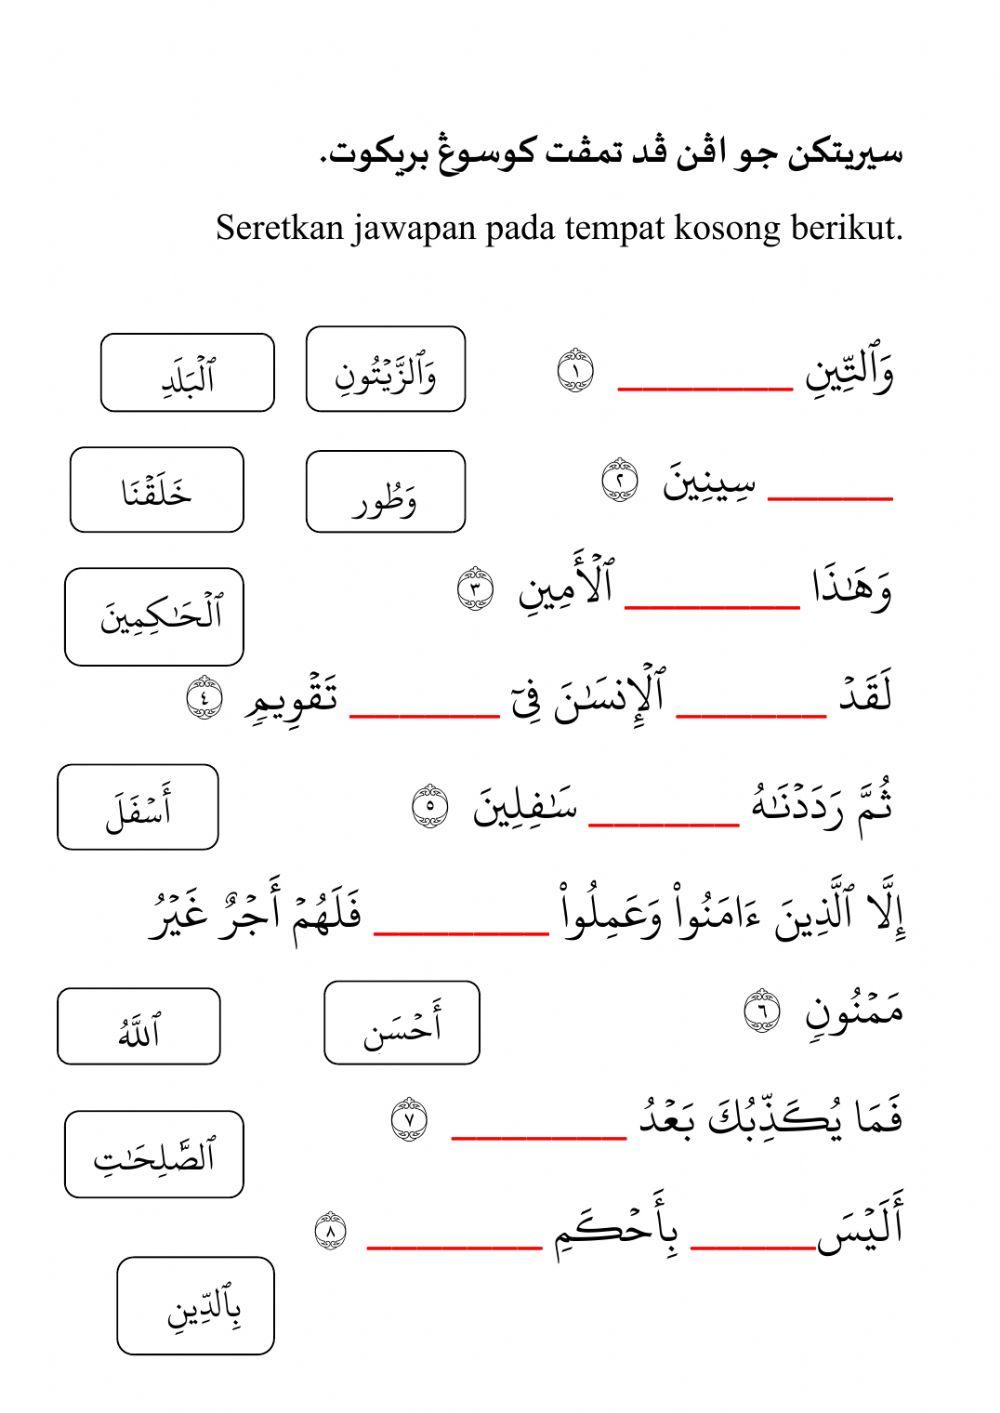 سيريتكن جو اڤن ڤد تمڤت كوسوڠ بريكوت.
Seretkan jawapan pada tempat kosong berikut.
وَٱلتِّينِ ________ ١
وَٱلزَّيۡتُونِ
ٱلۡبَلَدِ
______ سِينِينَ ٢
وَطُور
خَلَقۡنَا
وَهَٰذَا ________ ٱلۡأَمِينِ ٣
ٱلۡحَٰكِمِينَ
لَقَدۡ _______ ٱلۡإِنسَٰنَ فِيٓ _______ تَقۡوِيمٖ ٤
ثُمَّ رَدَدۡنَٰهُ _______ سَٰفِلِينَ ٥
أَسۡفَلَ
إِلَّا ٱلَّذِينَ ءَامَنُواْ وَعَمِلُواْ ________ فَلَهُمۡ أَجۡرٌ غَيۡرُ
مَمۡنُونٖ ٦
أَحۡسَن
ٱللَّهُ
فَمَا يُكَذِّبُكَ بَعۡدُ ________ ٧
ٱلصَّٰلِحَٰتِ
أَلَيۡسَ ______ بِأَحۡكَمِ ________ ٨
بِٱلدِّينِ